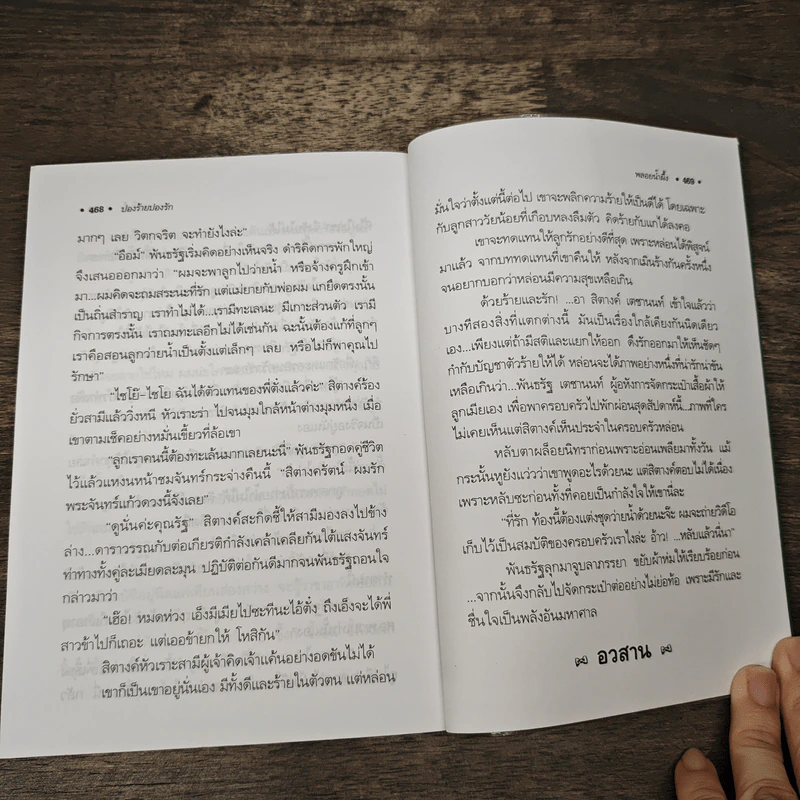 • 468 • ปองร้ายปองรัก
มากๆ เลย วิตกจริต จะทำยังไงล่ะ”
“อืมม์” พันธรัฐเริ่มคิดอย่างเห็นจริง ดำริคิดการพักใหญ่
จึงเสนอออกมาว่า “ผมจะพาลูกไปว่ายน้ำ หรือจ้างครูฝึกเข้า
มา...ผมคิดจะถมสระนะที่รัก แต่แม่ยายกับพ่อผม แกยึดตรงนั้น
เป็นถิ่นสำราญ เราทำไม่ได้...เรามีทะเลนะ มีเกาะส่วนตัว เรามี
กิจการตรงนั้น เราถมทะเลอีกไม่ได้เช่นกัน ฉะนั้นต้องแก้ที่ลูกๆ
เราคือสอนลูกว่ายน้ำเป็นตั้งแต่เล็กๆ เลย หรือไม่ก็พาคุณไป
รักษา”
“ไชโย้-ไชโย ฉันได้ตัวแทนของพี่ตั่งแล้วค่ะ” สิตางค์ร้อง
ยั่วสามีแล้ววิ่งหนี หัวเราะร่า ไปจนมุมใกล้หน้าต่างมุมหนึ่ง เมื่อ
เขาตามเช็คอย่างหมั่นเขี้ยวที่ล้อเขา
“ลูกเราคนนี้ต้องทะเล้นมากเลยนะนี่” พันธรัฐกอดคู่ชีวิต
ไว้แล้วแหงนหน้าชมจันทร์กระจ่างคืนนี้ “สิตางค์รัตน์ ผมรัก
พระจันทร์แก้วดวงนี้จังเลย”
“ดูนั่นค่ะคุณรัฐ” สิตางค์สะกิดชี้ให้สามีมองลงไปข้าง
ล่าง...ดาราวรรณกับต่อเกียรติกำลังเคล้าเคลียกันใต้แสงจันทร์
ท่าทางทั้งคู่ละเมียดละมุน ปฏิบัติต่อกันดีมากจนพันธรัฐถอนใจ
กล่าวมาว่า
“เฮ้อ! หมดห่วง เอ็งมีเมียไปซะทีนะไอ้ตั๋ง ถึงเอ็งจะได้พี่
สาวข้าไปก็เถอะ แต่เออข้ายกให้ โหสิกัน”
สิตางค์หัวเราะสามีผู้เจ้าคิดเจ้าแค้นอย่างอดขันไม่ได้
เขาก็เป็นเขาอยู่นั่นเอง มีทั้งดีและร้ายในตัวตน แต่หล่อน
พลอยน้ำผึ้ง • 469 •
มั่นใจว่าตั้งแต่นี้ต่อไป เขาจะพลิกความร้ายให้เป็นดีได้ โดยเฉพาะ
กับลูกสาววัยน้อยที่เกือบหลงลืมตัว คิดร้ายกับแกได้ลงคอ
เขาจะทดแทนให้ลูกรักอย่างดีที่สุด เพราะหล่อนได้พิสูจน์
มาแล้ว จากบททดแทนที่เขาคืนให้ หลังจากเมินร้างกันครั้งหนึ่ง
จนอยากบอกว่าหล่อนมีความสุขเหลือเกิน
ด้วยร้ายและรัก! ...อา สิตางค์ เตชานนท์ เข้าใจแล้วว่า
บางทีสองสิ่งที่แตกต่างนี้ มันเป็นเรื่องใกล้เคียงกันนิดเดียว
เอง...เพียงแต่ถ้ามีสติและแยกให้ออก ดึงรักออกมาให้เห็นชัดๆ
กำกับบัญชาตัวร้ายให้ได้ หล่อนจะได้ภาพอย่างหนึ่งที่น่ารักน่าขัน
เหลือเกินว่า...พันธรัฐ เตชานนท์ ผู้อหังการจัดกระเป๋าเสื้อผ้าให้
ลูกเมียเอง เพื่อพาครอบครัวไปพักผ่อนสุดสัปดาห์นี้...ภาพที่ใคร
ไม่เคยเห็นแต่สิตางค์เห็นประจำในครอบครัวหล่อน
หลับตาผล็อยนิทราก่อนเพราะอ่อนเพลียมาทั้งวัน แม้
กระนั้นหูยังแว่วว่าเขาพูดอะไรด้วยนะ แต่สิตางค์ตอบไม่ได้เนื่อง
เพราะหลับซะก่อนทั้งที่คอยเป็นกำลังใจให้เขานี่ละ
“ที่รัก ท้องนี้ต้องแต่งชุดว่ายน้ำด้วยนะจ๊ะ ผมจะถ่ายวิดีโอ
เก็บไว้เป็นสมบัติของครอบครัวเราไงล่ะ อ้าว! ...หลับแล้วนี่นา”
พันธรัฐลุกมาจูบลาภรรยา ขยับผ้าห่มให้เรียบร้อยก่อน
...จากนั้นจึงกลับไปจัดกระเป๋าต่ออย่างไม่ย่อท้อ เพราะมีรักและ
ชื่นใจเป็นพลังอันมหาศาล
อวสาน